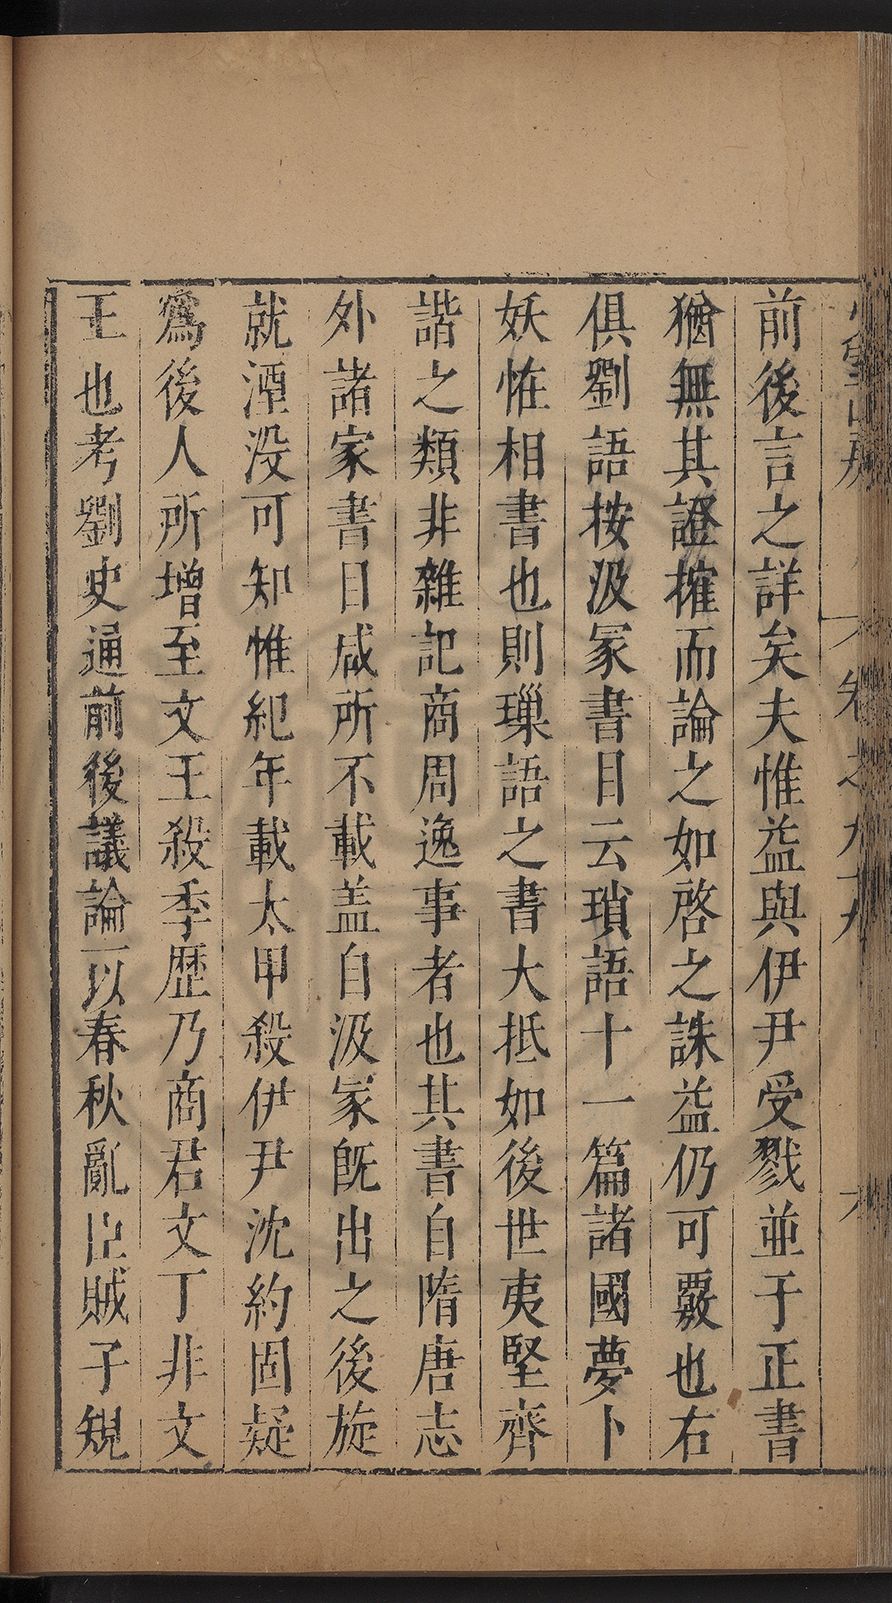 前後言之詳矣夫惟益與伊尹受戮並于正書
猶無其證搉而論之如啓之誅益仍可覈也右
俱劉語按汲冢書目云瑣語十一篇諸國夢卜
妖恠相書也則璅語之書大抵如後世夷堅齊
諧之類非雜記商周逸事者也其書自隋唐志
外諸家書目咸所不載盖自汲冢旣出之後旋
就湮没可知惟紀年載太甲殺伊尹沈約固疑
爲後人所增至文王殺季歴乃商君文丁非文
王也考劉史通前後議論一以春秋亂臣賊子規